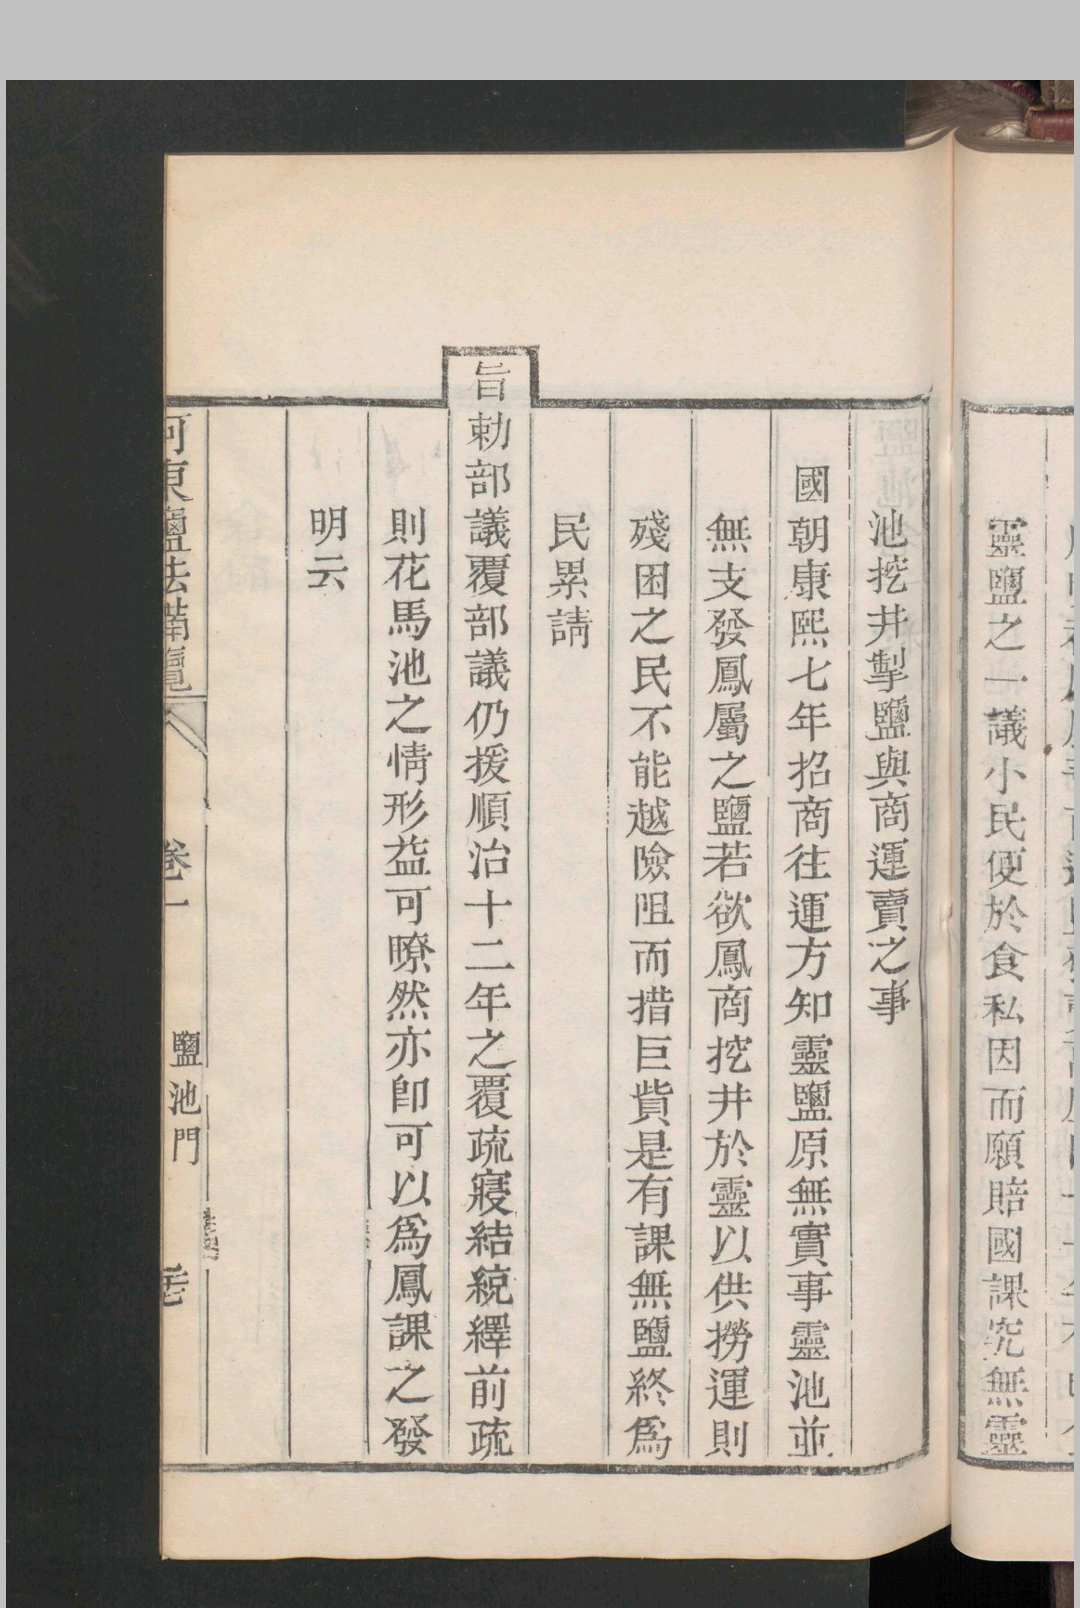 靈鹽之一議小民便於食私因而願賠國課究無靈
池挖井掣鹽與商運賣之事
國朝康熙七年招商往運方知靈鹽原無實事靈池並
無支發鳳屬之鹽若欲鳳商挖井於靈以供撈運則
殘困之民不能越險阻而措巨貲是有課無鹽終爲
民累請
旨勅部議覆部議仍援順治十二年之覆疏寢結統繹前疏
則花馬池之情形益可瞭然亦卽可以爲鳳課之發
明云
河東鹽法備覽
卷一
鹽池門